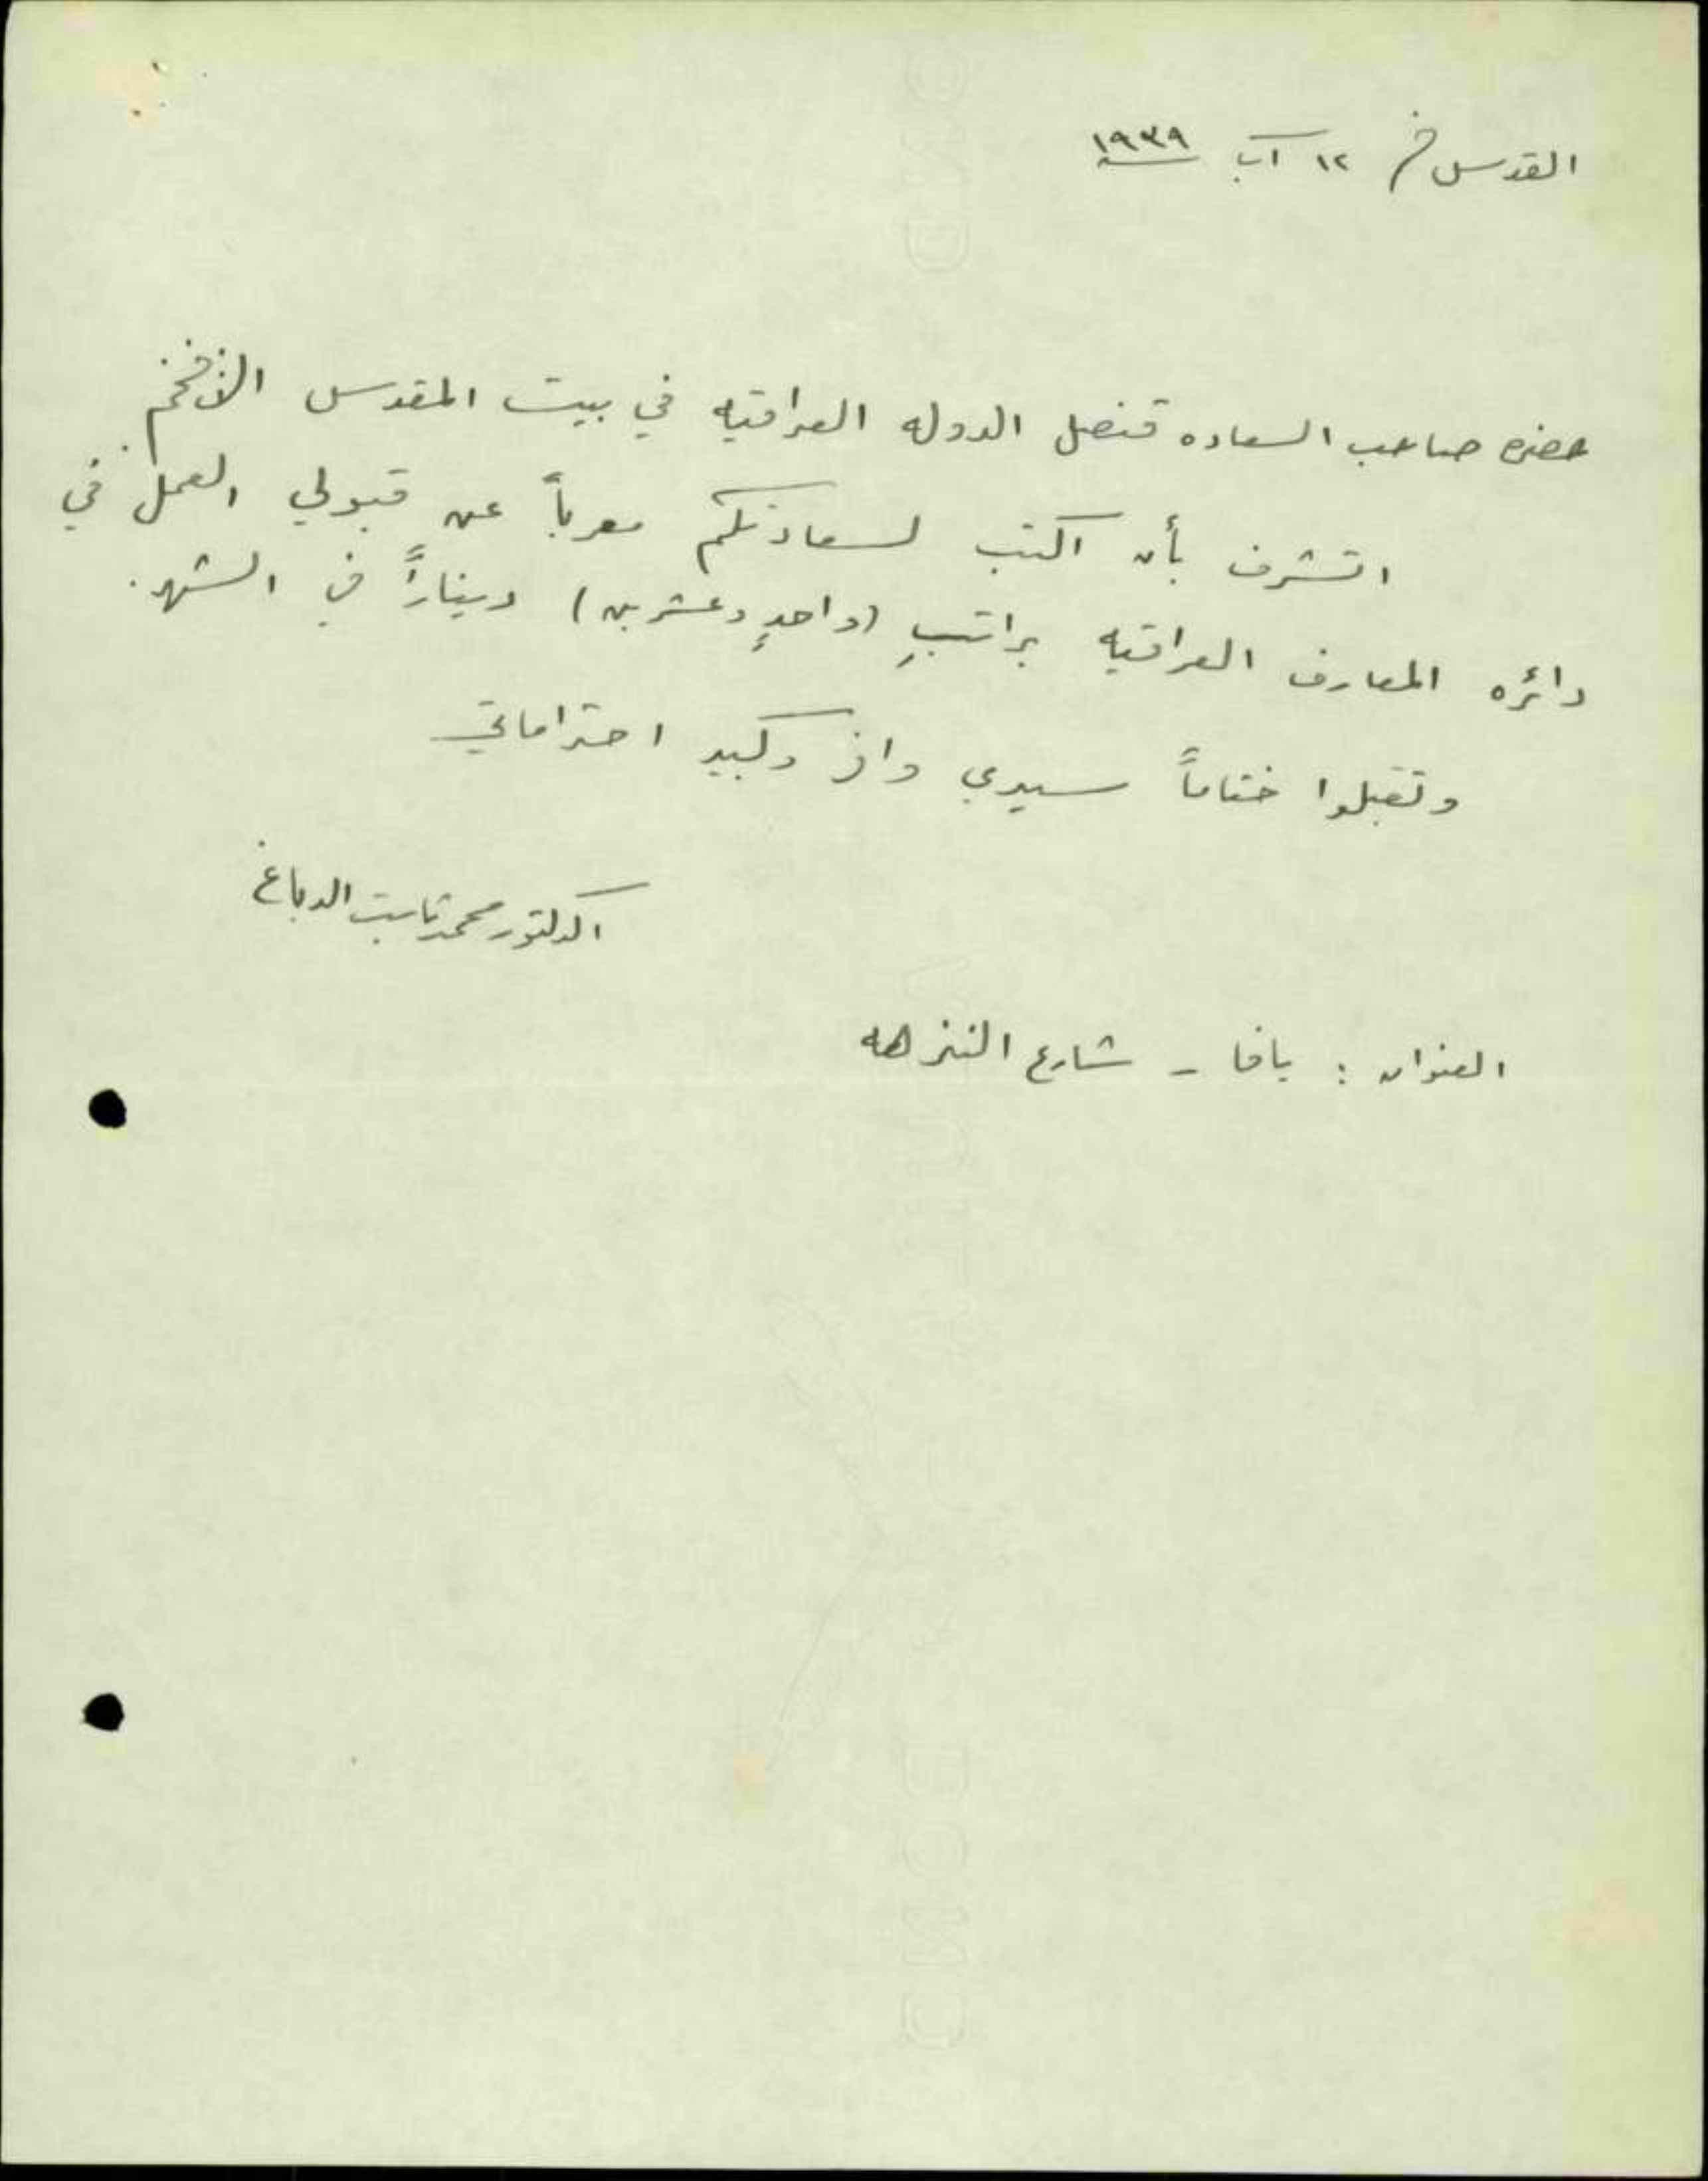 القدس في ١٢ آب ١٩٣٩
حضره صاحب السعاده قنصل الدوله العراقيه في بيت المقدس الأفخم
اتشرف بأن اكتب لسعادتكم معرباً عن قبولي العمل في
دائره المعارف العراقيه براتبٍ (واحدٍ وعشرين) ديناراً في الشهر.
وتقبلوا ختاماً سيدي وافر وكبير احتراماتي
الدكتور محمد ثابت الدباغ
العنوان : يافا - شارع النزهه